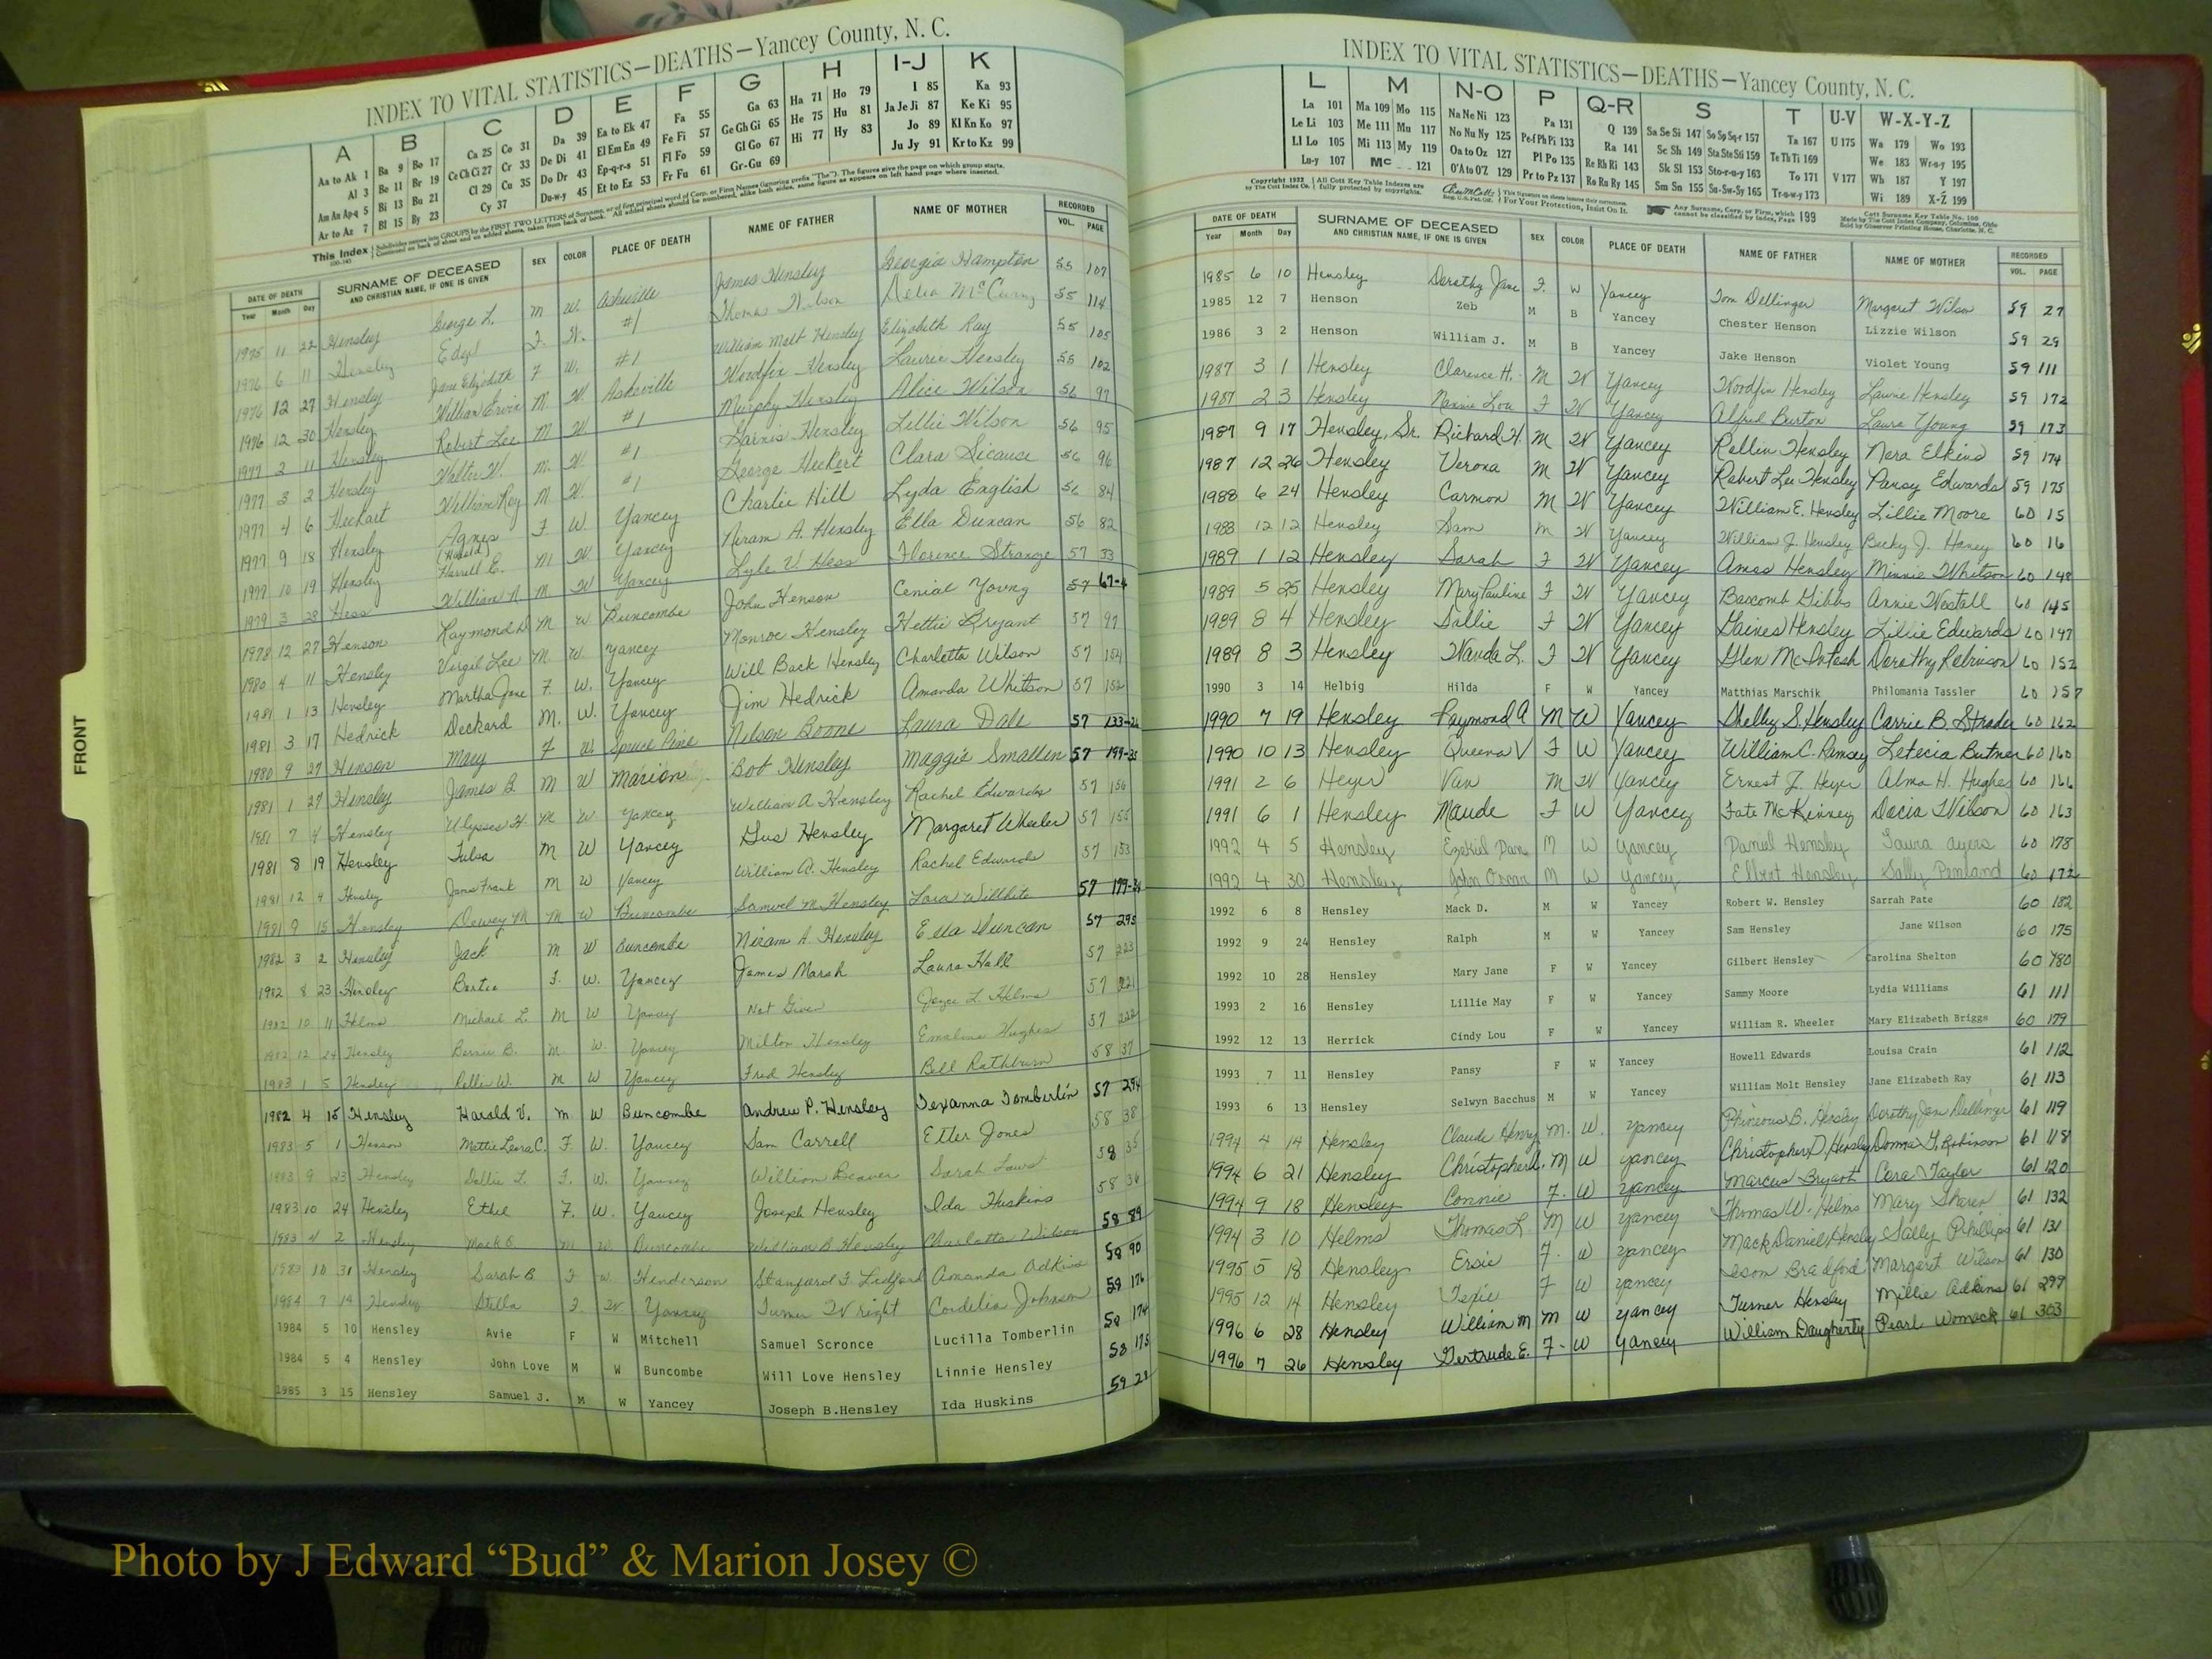 INDEX TO VITAL STATISTICS—DEATHS—Yancey County, N. C.
A B C D E F G H I-J K
Aa to Ak 1 Ba 9 Bo 17 Ca 25 Co 31 Da 39 Ea to Ek 47 Fa 55 Ga 63 Ha 71 Ho 79 I 85 Ka 93
Al 3 Be 11 Br 19 Ce Ch Ci 27 Cr 33 De Di 41 El Em En 49 Fe Fi 57 Ge Gh Gi 65 He 75 Hu 81 Ja Je Ji 87 Ke Ki 95
Am An Ap-q 5 Bi 13 Bu 21 Cl 29 Cu 35 Do Dr 43 Ep-q-r-s 51 Fl Fo 59 Gl Go 67 Hi 77 Hy 83 Jo 89 Kl Kn Ko 97
Ar to Az 7 Bl 15 By 23 Cy 37 Du-w-y 45 Et to Ez 53 Fr Fu 61 Gr-Gu 69 Ju Jy 91 Kr to Kz 99
DATE OF DEATH SURNAME OF DECEASED SEX COLOR PLACE OF DEATH NAME OF FATHER NAME OF MOTHER RECORDED
Year Month Day AND CHRISTIAN NAME, IF ONE IS GIVEN VOL. PAGE
1975 11 22 Hensley George L. M W. Asheville James Hensley Georgia Hampton 55 107
1976 6 11 Hensley F. W. #1 55 114
1976 12 27 Hensley Jane Elizabeth F W. #1 William Molt Hensley Elizabeth Ray 55 105
1976 12 30 Hensley William Ervin M. W. Asheville Woodfin Hensley Laurie Hensley 55 102
1977 2 11 Hensley Robert Lee M W #1 Murphy Hensley Alice Wilson 56 97
1977 3 2 Hensley Walter V. M. W. #1 Garnis Hensley Lillie Wilson 56 95
1977 4 6 Heckart William Roy M W. #1 George Heckert Clara Sicause 56 96
1977 9 18 Hensley Agnes F. W. Yancey Charlie Hill Lyda English 56 84
1977 10 19 Hensley Harrell E. (Harold) M W Yancey Niram A. Hensley Ella Duncan 56 82
1979 3 28 Hess William N M W Yancey Lyle V. Hess Florence Strange 57 33
1978 12 27 Henson Raymond D M W Buncombe John Henson Cenial Young 57 67-4
1980 4 11 Hensley Virgil Lee M. W. Yancey Monroe Hensley Hettie Bryant 57 97
1981 1 13 Hensley Martha Jane F. W. Yancey Will Back Hensley Charletta Wilson 57 154
1981 3 17 Hedrick Deckard M. W. Yancey Jim Hedrick Amanda Whitson 57 152
1980 9 27 Henson Mary F W. Spruce Pine Nelson Boone Laura Dale 57 133-26
1981 1 27 Hensley James B M W Marion Bob Hensley Maggie Smallen 57 199-35
1981 7 4 Hensley Ulysses H. M W. Yancey William A Hensley Rachel Edwards 57 156
1981 8 19 Hensley Tulsa M W Yancey Gus Hensley Margaret Wheeler 57 155
1981 12 4 Hensley James Frank M W Yancey William A. Hensley Rachel Edwards 57 153
1981 9 15 Hensley Dewey M M W Buncombe Samuel M. Hensley Lora Willhite 57 199-34
1982 3 2 Hensley Jack M W Buncombe Niram A Hensley Ella Duncan 57 295
1982 8 23 Hensley Bertie F. W. Yancey James Marsh Laura Hall 57 223
1982 10 11 Helms Michael L. M W Yancey Not Given Joyce L. Helms 57 221
1982 12 24 Hensley Bernie B. M. W. Yancey Milton Hensley Emaline Hughes 57 222
1983 1 5 Hensley Rollie W. M W Yancey Fred Hensley Bell Rathburn 58 37
1982 4 15 Hensley Harold V. M. W Buncombe Andrew P. Hensley Texanna Tomberlin 57 294
1983 5 1 Henson Mattie Leora C. F. W. Yancey Sam Carrell Etter Jones 58 38
1983 9 23 Hensley Dollie L. F. W. Yancey William Beaver Sarah Laws 58 35
1983 10 24 Hensley Ethel F. W. Yancey Joseph Hensley Ida Huskins 58 36
1983 4 2 Hensley Mack E. M W. Buncombe William B Hensley Charlotte Wilson 58 89
1983 10 31 Hensley Sarah B F W. Henderson Stanford F Ledford Amanda Adkins 58 90
1984 7 14 Hensley Stella F. W Yancey Turner Wright Cordelia Johnson 58 176
1984 5 10 Hensley Avie F W Mitchell Samuel Scronce Lucilla Tomberlin 58 174
1984 5 4 Hensley John Love M W Buncombe Will Love Hensley Linnie Hensley 58 175
1985 3 15 Hensley Samuel J. M W Yancey Joseph B.Hensley Ida Huskins 59 21
FRONT
INDEX TO VITAL STATISTICS—DEATHS—Yancey County, N. C.
L M N-O P Q-R S T U-V W-X-Y-Z
La 101 Ma 109 Mo 115 Na Ne Ni 123 Pa 131 Q 139 Sa Se Si 147 So Sp Sq-r 157 Ta 167 U 175 Wa 179 Wo 193
Le Li 103 Me 111 Mu 117 No Nu Ny 125 Pe-f Ph Pi 133 Ra 141 Sc Sh 149 Sta Ste Sti 159 Te Th Ti 169 We 183 Wr-u-y 195
Ll Lo 105 Mi 113 My 119 Oa to Oz 127 Pl Po 135 Re Rh Ri 143 Sk Sl 153 Sto-r-u-y 163 To 171 V 177 Wh 187 Y 197
Lu-y 107 Mc 121 O'A to O'Z 129 Pr to Pz 137 Ro Ru Ry 145 Sm Sn 155 Su-Sw-Sy 165 Tr-u-w-y 173 Wi 189 X-Z 199
DATE OF DEATH SURNAME OF DECEASED SEX COLOR PLACE OF DEATH NAME OF FATHER NAME OF MOTHER RECORDED
Year Month Day AND CHRISTIAN NAME, IF ONE IS GIVEN VOL. PAGE
1985 6 10 Hensley Dorothy Jane F. W Yancey Tom Dellinger Margaret Wilson 59 27
1985 12 7 Henson Zeb M B Yancey Chester Henson Lizzie Wilson 59 29
1986 3 2 Henson William J. M B Yancey Jake Henson Violet Young 59 111
1987 3 1 Hensley Clarence H. M W Yancey Woodfin Hensley Laurie Hensley 59 172
1987 2 3 Hensley Nannie Lou F W Yancey Alfred Burton Laura Young 59 173
1987 9 17 Hensley, Sr. Richard H. M W Yancey Rollin Hensley Nora Elkins 59 174
1987 12 26 Hensley Verona M W Yancey Robert Lee Hensley Pansy Edwards 59 175
1988 6 24 Hensley Carmon M W Yancey William E. Hensley Lillie Moore 60 15
1988 12 12 Hensley Sam M W Yancey William J. Hensley Becky J. Haney 60 16
1989 1 12 Hensley Sarah F W Yancey Amos Hensley Minnie Whitson 60 148
1989 5 25 Hensley Mary Pauline F W Yancey Bascomb Gibbs Annie Westall 60 145
1989 8 4 Hensley Sallie F W Yancey Gaines Hensley Lillie Edwards 60 147
1989 8 3 Hensley Wanda L. F W Yancey Glen McIntosh Dorothy Robinson 60 152
1990 3 14 Helbig Hilda F W Yancey Matthias Marschik Philomania Tassler 60 157
1990 7 19 Hensley Raymond A M W Yancey Shelby S. Hensley Carrie B. Strader 60 162
1990 10 13 Hensley Queena V F W Yancey William C. Ramsey Letecia Butner 60 160
1991 2 6 Heyer Van M W Yancey Ernest F. Heyer Alma H. Hughes 60 166
1991 6 1 Hensley Maude F W Yancey Fate McKinney Docia Wilson 60 163
1992 4 5 Hensley Ezekiel Dane M W Yancey Daniel Hensley Laura Ayers 60 178
1992 4 30 Hensley John Oscar M W Yancey Elbert Hensley Sally Penland 60 172
1992 6 8 Hensley Mack D. M W Yancey Robert W. Hensley Sarrah Pate 60 182
1992 9 24 Hensley Ralph M W Yancey Sam Hensley Jane Wilson 60 175
1992 10 28 Hensley Mary Jane F W Yancey Gilbert Hensley Carolina Shelton 60 180
1993 2 16 Hensley Lillie May F W Yancey Sammy Moore Lydia Williams 61 111
1992 12 13 Herrick Cindy Lou F W Yancey William R. Wheeler Mary Elizabeth Briggs 60 179
1993 7 11 Hensley Pansy F W Yancey Howell Edwards Louisa Crain 61 112
1993 6 13 Hensley Selwyn Bacchus M W Yancey William Molt Hensley Jane Elizabeth Ray 61 113
1994 4 14 Hensley Claude Henry M. W. Yancey Phineous B. Hensley Dorothy Jane Dellinger 61 119
1994 6 21 Hensley Christopher M W Yancey Christopher D. Hensley Donna G. Robinson 61 118
1994 9 18 Hensley Connie F. W Yancey Marcus Bryant Cora Taylor 61 120
1994 3 10 Helms Thomas L. M W Yancey Thomas W. Helms Mary Sharer 61 132
1995 5 18 Hensley Ersie F. W Yancey Mack Daniel Hensley Sally Phillips 61 131
1995 12 14 Hensley Texie F W Yancey Bradford Margaret Wilson 61 130
1996 6 28 Hensley William M M W Yancey Turner Hensley Millie Adkins 61 299
1996 7 26 Hensley Gertrude E. F. W Yancey William Daugherty Pearl Womack 61 303
Photo by J Edward “Bud” & Marion Josey ©